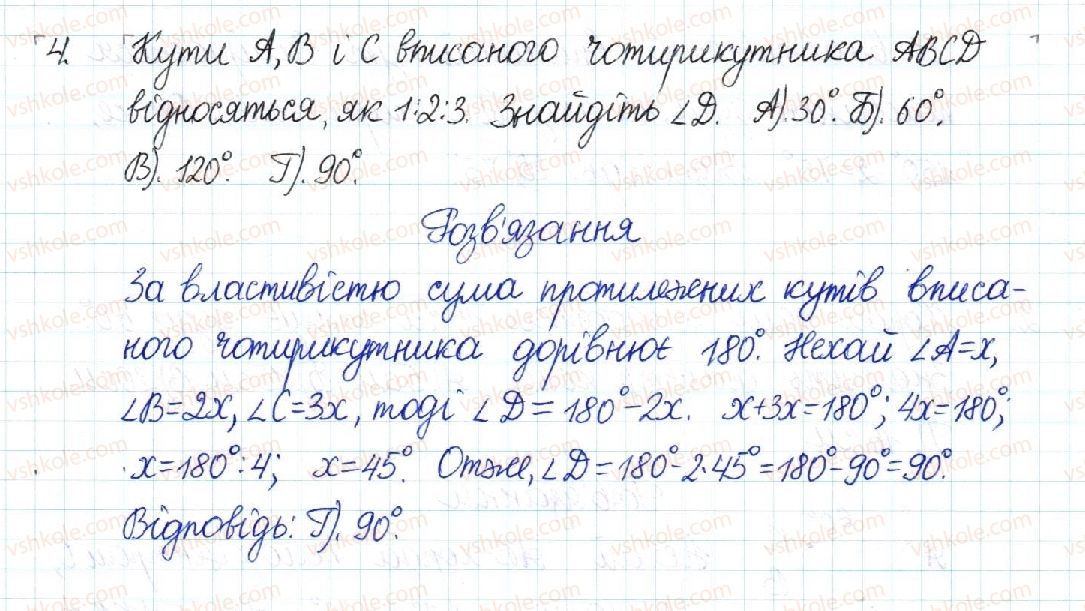 4. Кути A, B і C вписаного чотирикутника ABCD
відносяться, як 1:2:3. Знайдіть ∠D. А). 30°. Б). 60°.
В). 120°. Г). 90°.
Розв'язання
За властивістю сума протилежних кутів вписа-
ного чотирикутника дорівнює 180°. Нехай ∠A=x,
∠B=2x, ∠C=3x, тоді ∠D=180°-2x. x+3x=180°; 4x=180°;
x=180°:4; x=45°. Отже, ∠D=180°-2·45°=180°-90°=90°.
Відповідь: Г). 90°.